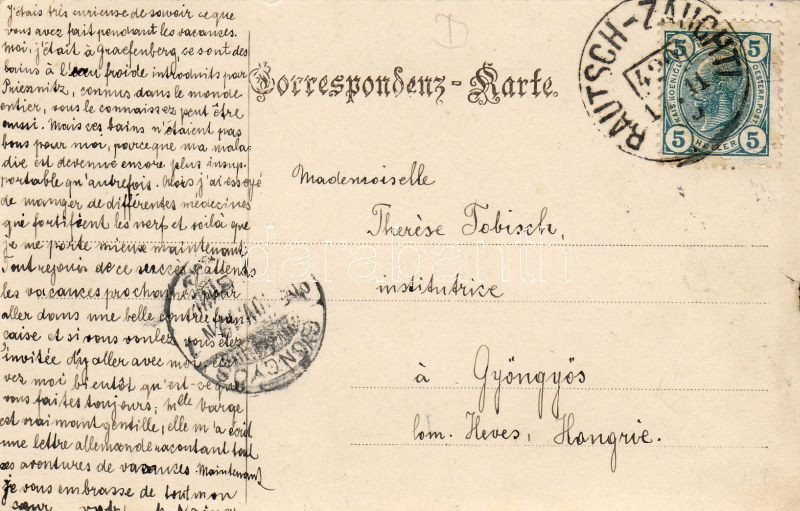 J'étais très curieuse de savoir ce que
vous avez fait pendant les vacances.
Moi, j'était à Graefenberg, ce sont des
bains à l'eau froide introduits par
Priessnitz, connus dans le monde
entier, vous le connaissez peut être
aussi. Mais ces bains n'étaient pas
bons pour moi, parce que ma mala-
die est devenue encore plus insup-
portable qu'autrefois. Alors j'ai essayé
de manger de différentes médecines
qui fortifient les nerfs et voilà que
je me porte mieux maintenant.
Tout rejouis de ce succès j'attends
les vacances prochaines pour
aller dans une belle contrée fran-
caise et si vous voulez vous êtes
invitée d'y aller avec moi. écri-
vez moi bientôt qu'est-ce que
vous faites toujours; Mlle Varge
est vraiment gentille, elle m'a écrit
une lettre allemande racontant tout
ses aventures de vacances. Maintenant
je vous embrasse de tout mon
cœur
Correspondenz-Karte.
RAUTSCH-ZAUCHTL
5 5
KAIS. KOENIGL. OESTERR. POST
5 HELLER 5
Mademoiselle
Therèse Tobisch,
institutrice
à Gyöngyös
Com. Heves, Hongrie.
GYÖNGYÖS
darabanth